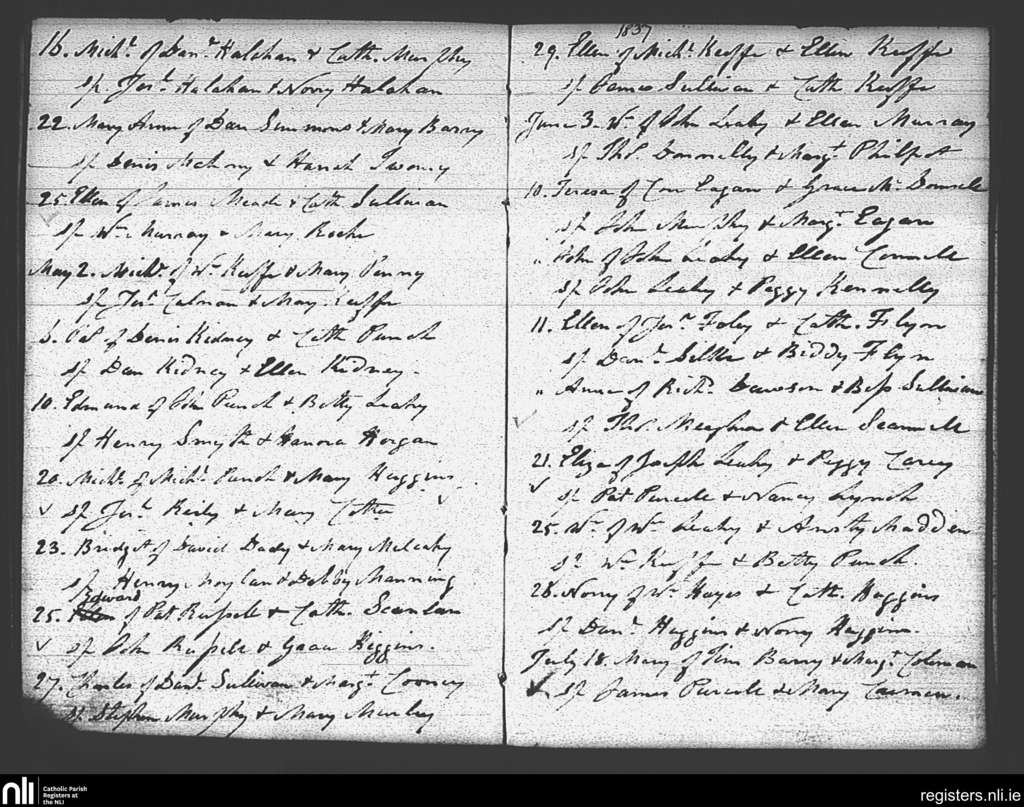 16. Mich.l of Dan.l Halahan & Cath. Murphy
sp. Jer.h Halahan & Norry Halahan
22. Mary Anne of Dan Simmons & Mary Barry
sp Denis Mahony & Hanah Twomey
25. Ellen of James Meade & Cath Sullivan
sp Wm Murray & Mary Roche
May 2. Mich.l of Wm Keeffe & Mary Penny
sp Jer.h Colman & Mary Keeffe
6. Pat of Denis Kidney & Cath Punch
sp Dan Kidney & Ellen Kidney.
10. Edmund of John Punch & Betty Leahy
sp Henry Smyth & Hanora Horgan
20. Mich.l of Mich.l Punch & Mary Huggins
sp Jer.h Reily & Mary Cotter
23. Bridget of David Dady & Mary Mulcahy
sp Henry Moylan & Debby Manning
Edward
25. of Pat Russell & Cath. Scanlan
sp John Russell & Grace Higgins.
27. Charles of Dan.l Sullivan & Marg.t Cooney
sp Stephen Murphy & Mary Murley
1837
29. Ellen of Mich.l Keeffe & Ellen Keeffe
sp James Sullivan & Cath Keeffe
June 3. Wm of John Leahy & Ellen Murray
sp Tho.s Donnelly & Marg.t Philpot
10. Teresa of Con Eagan & Grace McDonnell
sp John Murphy & Marg.t Eagan
" John of John Leahy & Ellen Connell
sp John Leahy & Peggy Kennelly
11. Ellen of Jer.h Foley & Cath. Flyn
sp Dan.l & Biddy Flyn
" Anne of Rich.d Dawson & Bess Sullivan
sp Tho.s Meaghra & Ellen Scannell
21. Eliza of Joseph Leahy & Peggy Carey
sp Pat Purcell & Nancy Lynch
25. Wm of Wm Leahy & Ansty Madden
sp Wm Keeffe & Betty Punch.
28. Norry of Wm Hayes & Cath. Huggins
sp Dan.l Huggins & Norry Huggins.
July 18. Mary of Tim Barry & Marg.t Coleman
sp James Purcell & Mary
nli
Catholic Parish
Registers at
the NLI
registers.nli.ie